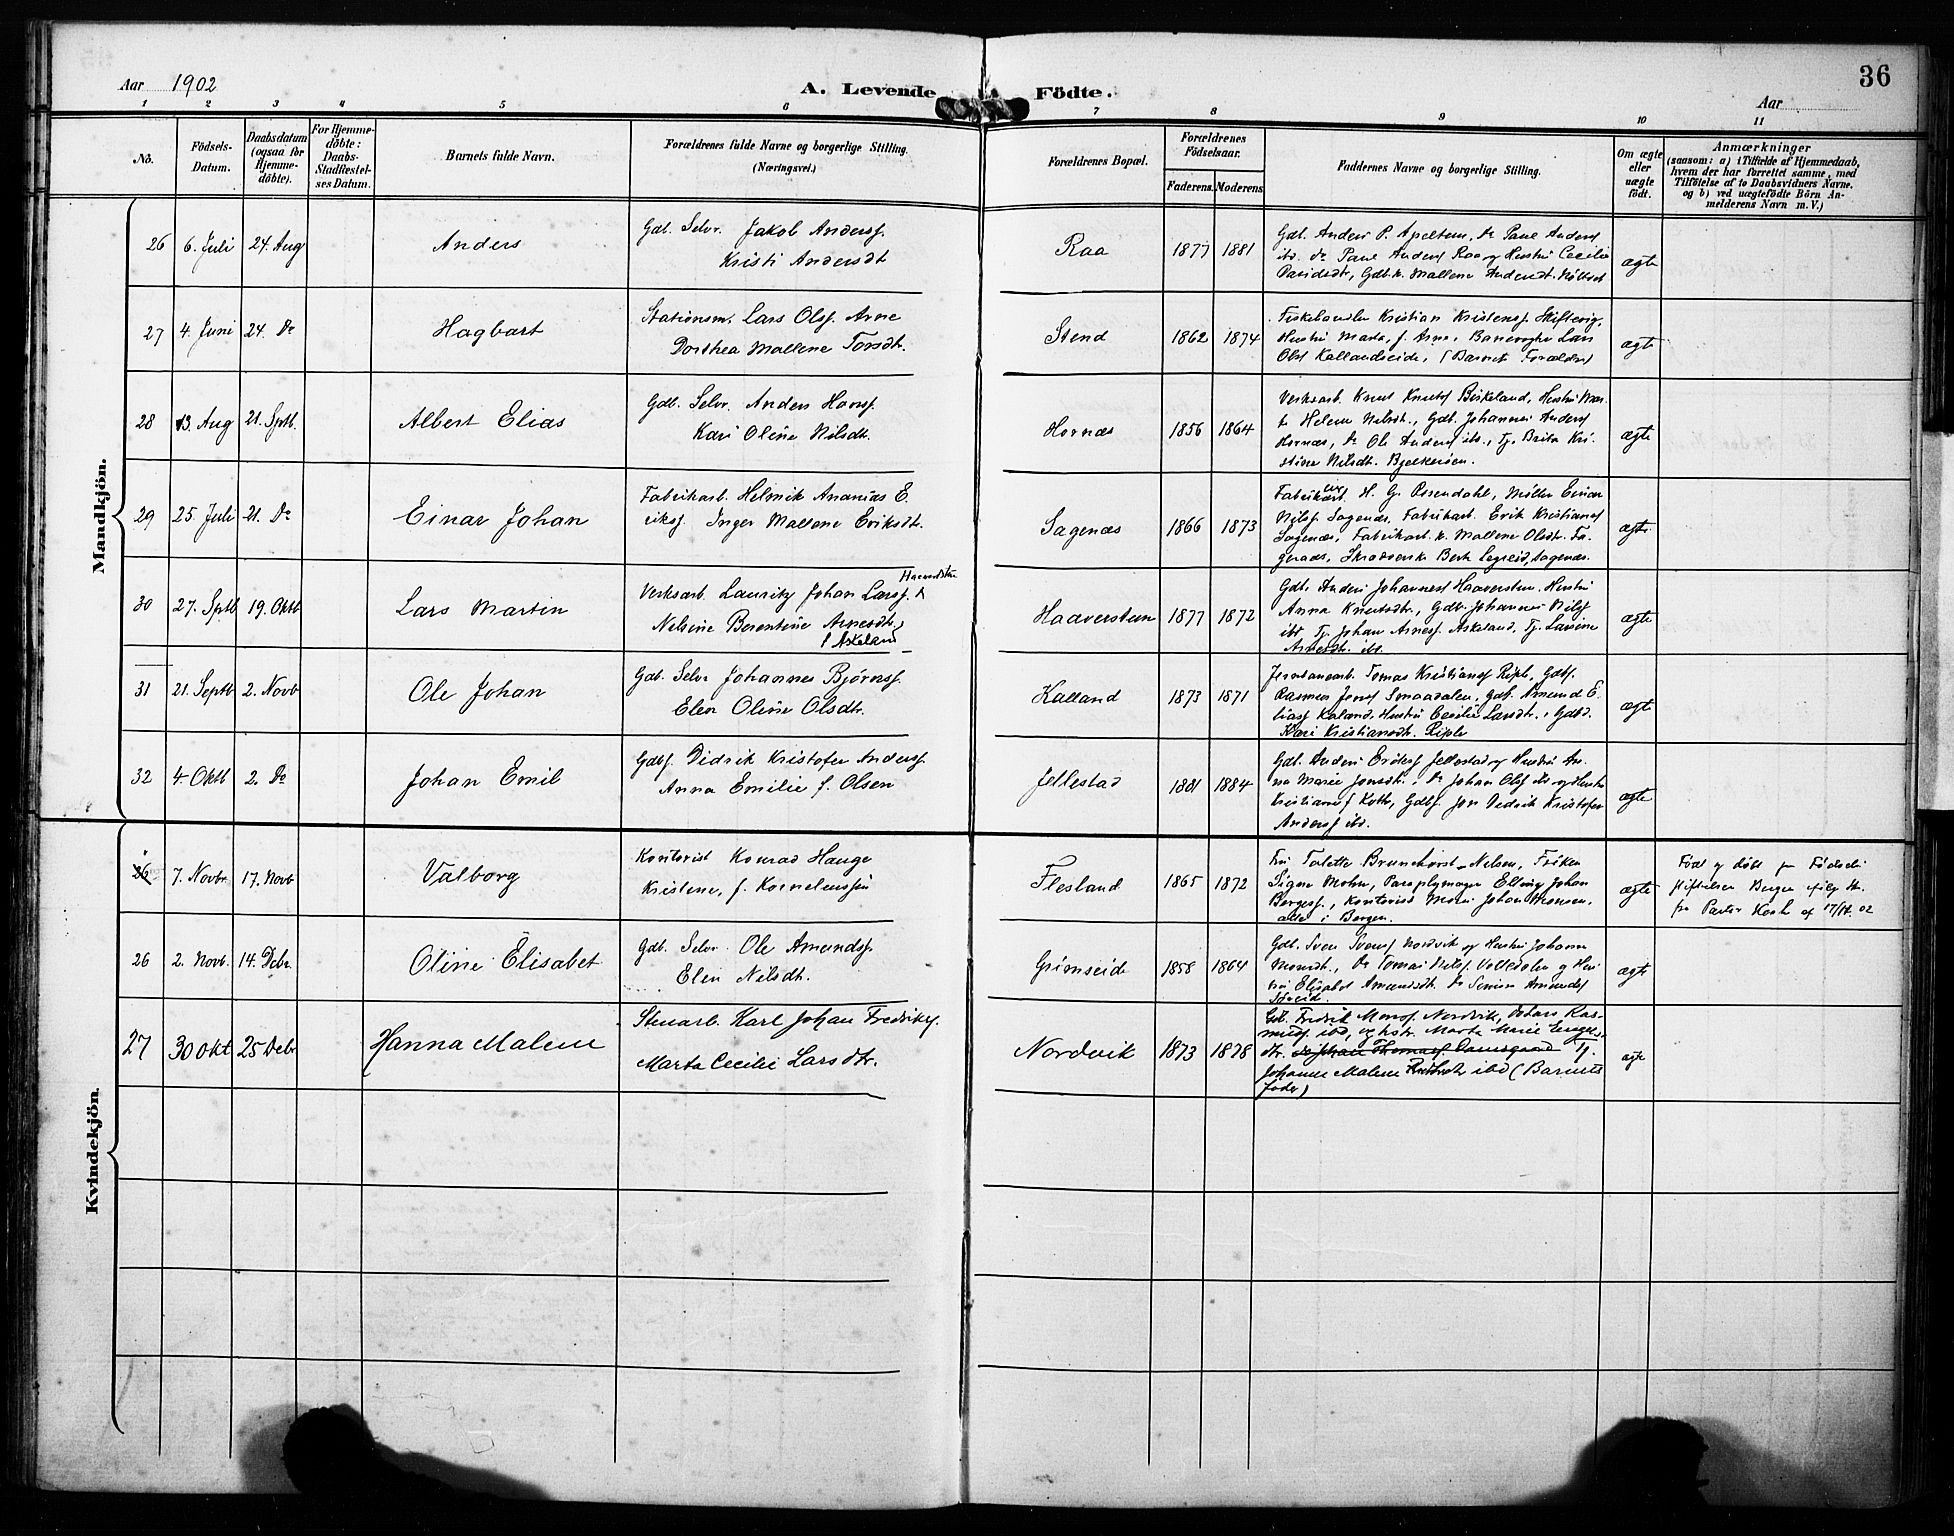 Aar 1902
A. Levende Födte.
36
Aar
1 2 3 4 5 6 7 8 9 10 11
No.
Födsels-Datum.
Daabsdatum (ogsaa for Hjemme-döbte).
For Hjemme-döbte: Daabs-Stadfæstel-ses Datum.
Barnets fulde Navn.
Forældrenes fulde Navne og borgerlige Stilling.
(Næringsvei.)
Forældrenes Bopæl.
Forældrenes Födselsaar.
Faderens. Moderens.
Faddernes Navne og borgerlige Stilling.
Om ægte eller uægte födt.
Anmærkninger
(saasom: a) i Tilfælde af Hjemmedaab, hvem der har forrettet samme, med Tilföielse af to Daabsvidners Navne, og b) ved uægtefödte Börn An-melderens Navn m. V.)
Mandkjön.
26 6. Juli 24. Aug Anders
Gdb. Selv. Jakob Anderss.
Kristi Andersdt
Raa 1877 1881
Gdb. Anders P. Apeltun, Do
ægte
27 4. Juni 24. Do Hagbart
Stationsm. Lars Ols. Arne
Dorthea Mallene Torsdt.
Stend 1862 1874
Fiskehandler Kristian Kristens. Skiftevig,
Hustru Marta f. Arne, Banevogter Lars
Ols. Kallandseide, (Barnets Forældre)
ægte
28 13. Aug 21. Sptb. Albert Elias
Gdb. Selv. Anders Hanss.
Kari Oline Nilsdt.
Hornæs 1856 1864
Verksarb. Knut Knuts. Birkeland, Hustru Mar-
ta Helene Nilsdt., Gdb. Johannes Anders.
Hornæs, Do Ole Anders. ibd., Tj. Brita Kri-
stine Nilsdt. Bjelkerøen.
ægte
29 25. Juli 21. Do Einar Johan
Fabrikarb. Helmik Ananias E.
riks. Inger Mallene Eriksdt.
Sagenæs 1866 1873
H. G. Rosendahl, Møller Einar
Nils. Sagenæs, Fabrikarb. Erik Kristians.
Sagenæs, Fabrikarb. k. Mallene Olsdt. Fa-
ægte
30 27. Sptb 19. Oktb Lars Martin
Verksarb. Lauritz Johan Larss.
Nelsine Berentine Arnesdt.
(Askeland
Haaversteen 1877 1872
Gdb. Anders Johanness. Haaversteen, Hustru
Anna Knutsdt., Gdb. Johannes Nils.
ibd Tj. Johan Arnes. Askeland, Tj. Larsine
Arnesdt. ibd.
ægte
31 21. Septb 2. Novb Ole Johan
Gdb. Selv Johannes Bjørns.
Elen Oline Olsdt.
Kalland 1873 1871
Tomas Kristians. Riple, Gdbs.
Rasmus Smaadalen, Gdb. Amund E-
lias. Kaland, Hustru Cecilie Larsdt., Gdbd.
Kari Kristiansdt. Riple
ægte
32 4. Oktb 2. Do Johan Emil
Gdbs. Didrik Kristofer Anderss.
Anna Emilie f. Olsen
Jellestad 1881 1884
Gdb. Anders Jellestad og Hustru An-
na Marie Jonsdt., Do Johan Ols. Do og Hustru
Gdbs. Jon Didrik Kristofer
Anderss. ibd.
ægte
Kvindekjön.
26 7. Novbr. 17. Novb Valborg
Kontorist Konrad Hauge
Kristene, f. Korneliussen
Flesland 1865 1872
Fru Talette Brunchorst-Nielsen, Frøken
Signe Mohn, Paraplymager Elling Johan
alle i Bergen.
ægte
Født og døbt paa Fødsels-
stiftelsen Bergen ifølge At.
fra Pastor Koch af 17/11. 02
26 2. Novb. 14. Debr. Oline Elisabet
Gdb. Selv. Ole Amunds.
Elen Nilsdt.
Grimseid 1858 1864
Gdb. Sven Svens. Nordvik og Hustru Johanna
Monsdt., Do Tomas Nils. Valledalen og Hus-
tru Elisabet Amundsdt. Do
ægte
27 30 Okt 25 Debr. Hanna Malene
Stenarb. Karl Johan Fredriks.
Marta Cecilie Larsdtr.
Nordvik 1873 1878
Gdb. Fredrik Monss. Nordvik, Ras-
muss. ibd, og hstr. Marta Marie
dtr. Johan Thomass. Tj.
Johanne Malene ibd (Barnets
fader)
ægte